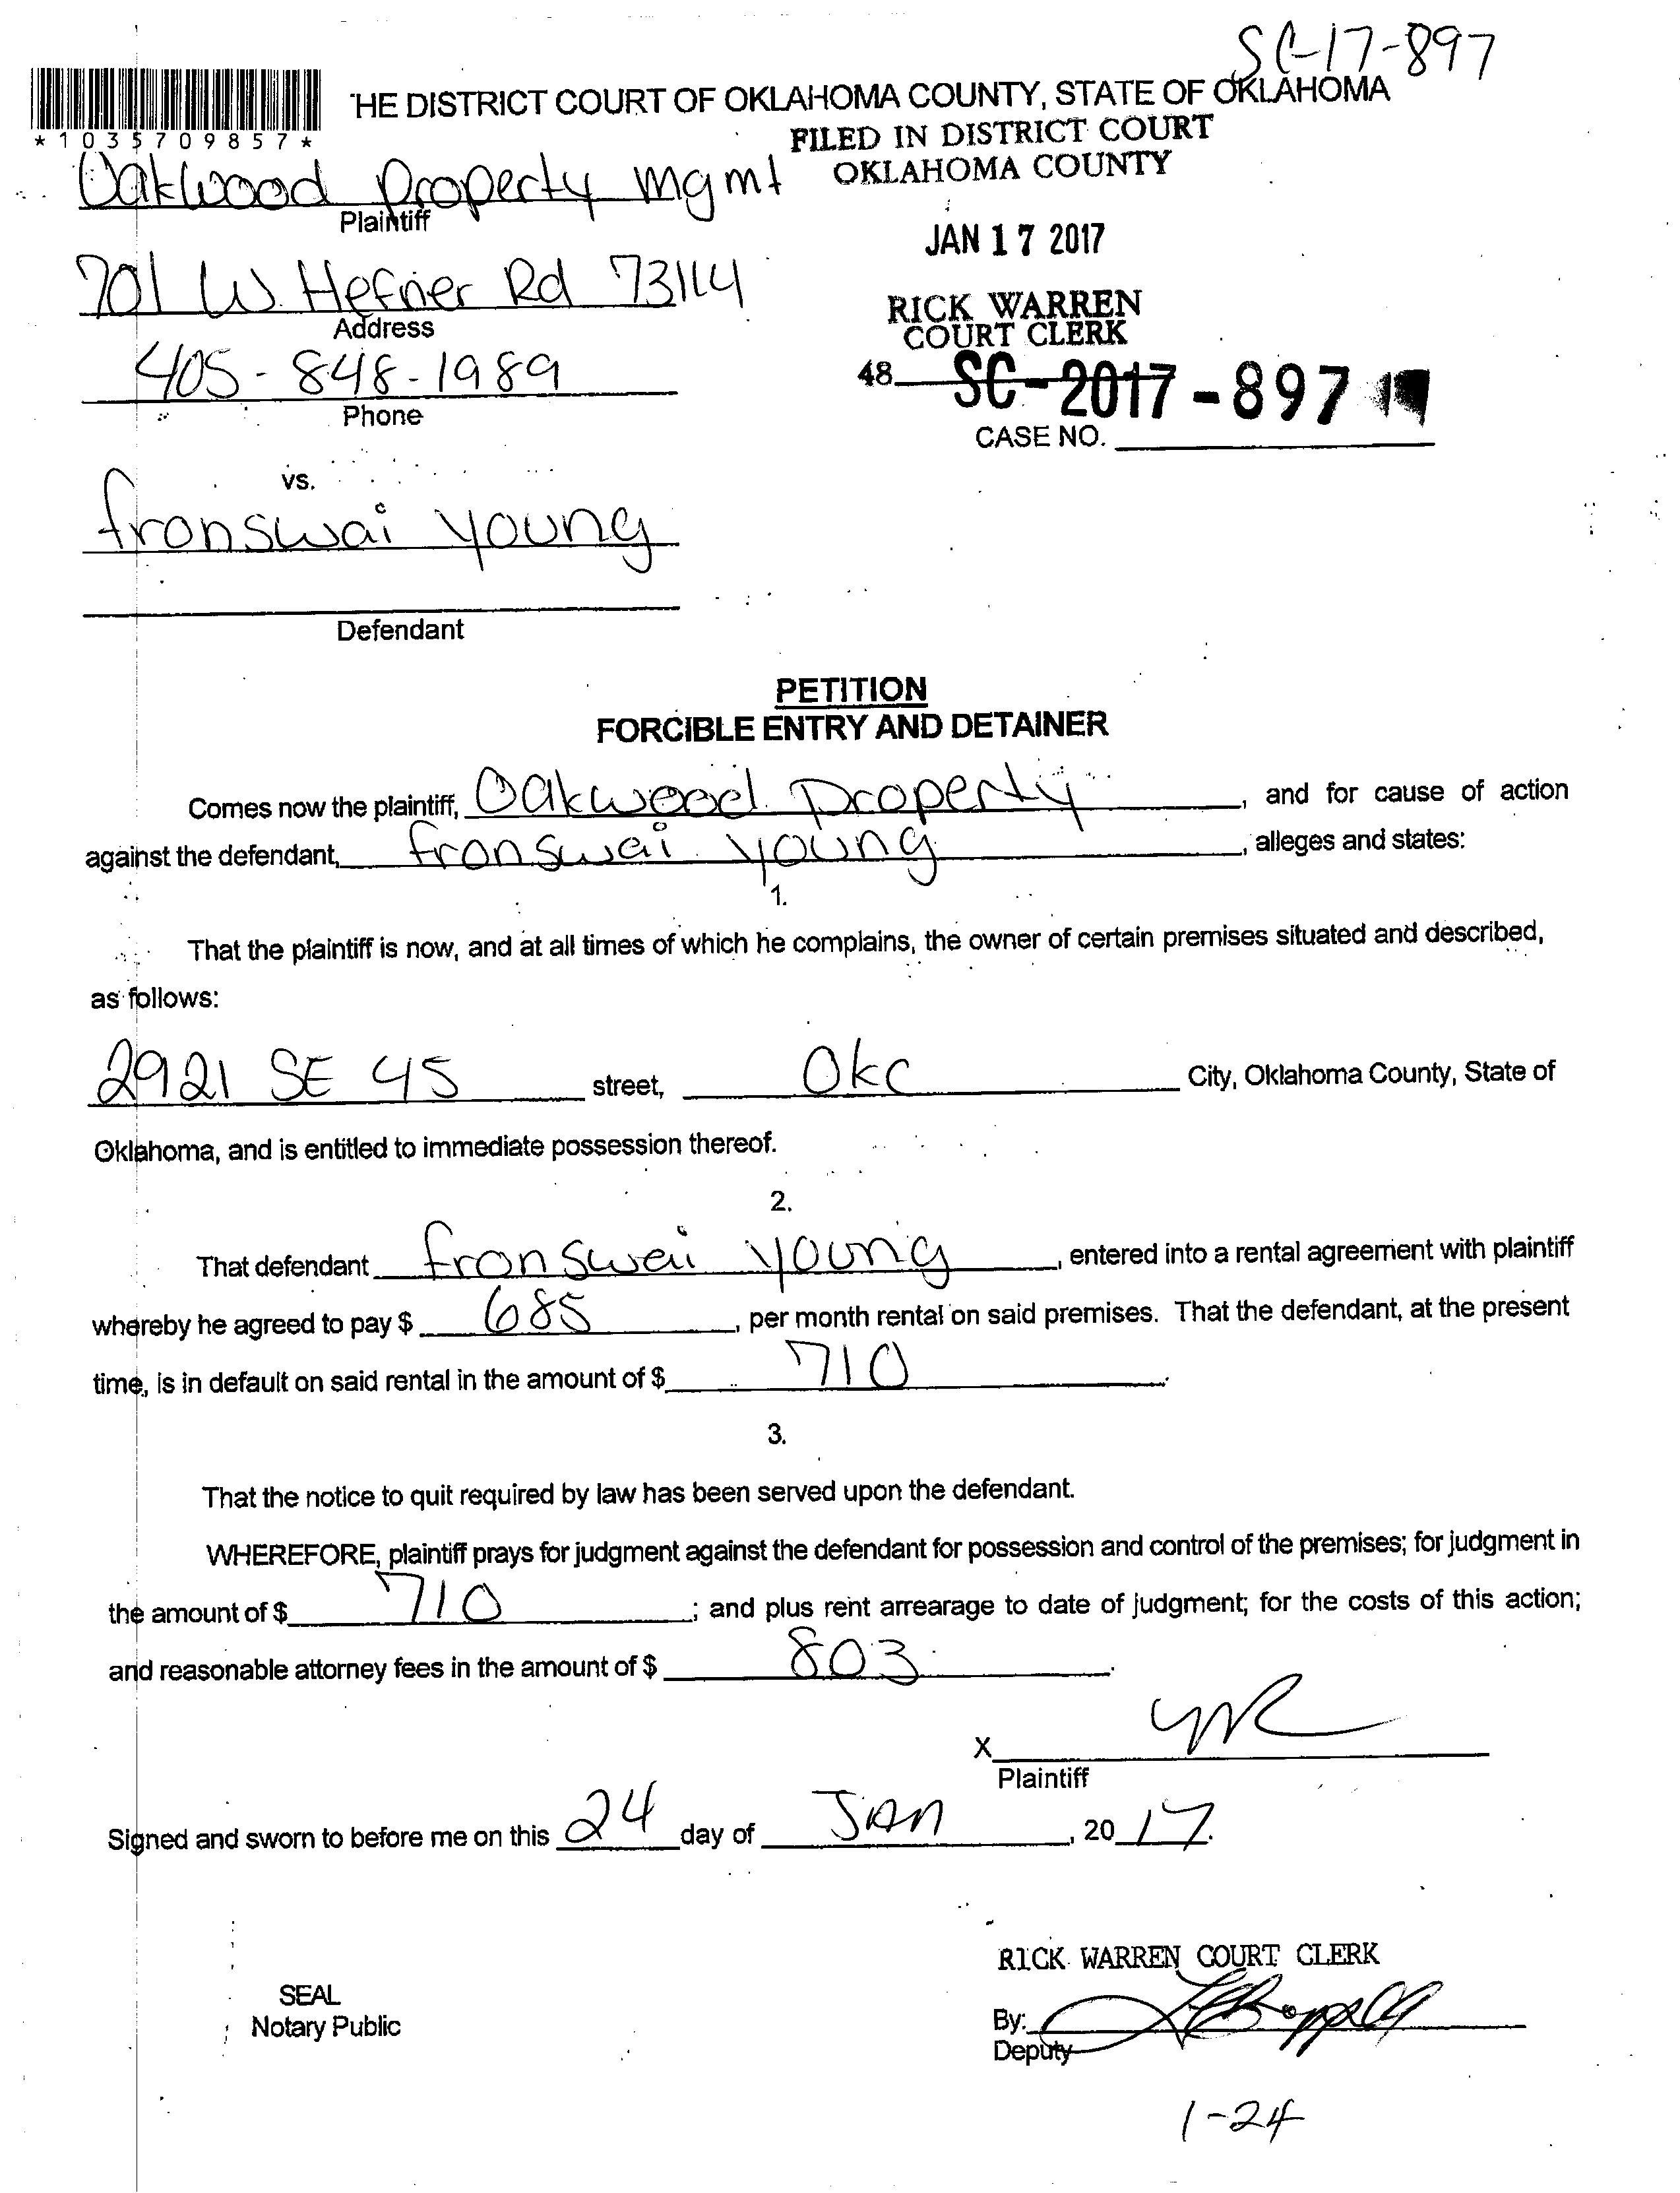 SC-17-897
'HE DISTRICT COURT OF OKLAHOMA COUNTY, STATE OF OKLAHOMA
*1035709857*
FILED IN DISTRICT COURT
OKLAHOMA COUNTY
Oakwood Property Mgmt
Plaintiff
JAN 17 2017
701 W. Hefner Rd 73114
Address
RICK WARREN
COURT CLERK
405-848-1989
Phone
48 SC-2017-897
CASE NO.
vs.
fronswai young
Defendant
PETITION
FORCIBLE ENTRY AND DETAINER
Comes now the plaintiff, Oakwood Property, and for cause of action
against the defendant, fronswai young, alleges and states:
1.
That the plaintiff is now, and at all times of which he complains, the owner of certain premises situated and described,
as follows:
2921 SE 45 street, Okc City, Oklahoma County, State of
Oklahoma, and is entitled to immediate possession thereof.
2.
That defendant fronswai young, entered into a rental agreement with plaintiff
whereby he agreed to pay $ 685, per month rental on said premises. That the defendant, at the present
time, is in default on said rental in the amount of $ 710.
3.
That the notice to quit required by law has been served upon the defendant.
WHEREFORE, plaintiff prays for judgment against the defendant for possession and control of the premises; for judgment in
the amount of $ 710; and plus rent arrearage to date of judgment; for the costs of this action;
and reasonable attorney fees in the amount of $ 803.
X
Plaintiff
Signed and sworn to before me on this 24 day of JAN, 20 17.
RICK WARREN COURT CLERK
SEAL
Notary Public
By:
Deputy
1-24